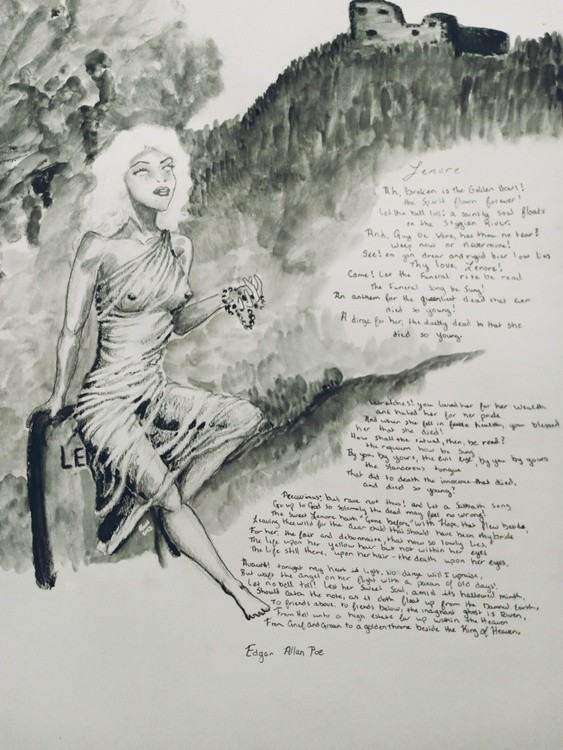 Lenore
Ah, broken is the Golden Bowl!
the Spirit flown forever!
Let the bell toll! a saintly soul floats
on the Stygian River.
And, Guy De Vere, has thou no tear?
Weep now or nevermore!
See! on yon drear and rigid bier low lies
Thy love, Lenore!
Come! Let the Funeral rite be read
The Funeral Song be Sung!
An anthem for the queenliest dead that ever
died so young!
A dirge for her, the doubly dead in that she
died so young.
Wretches! you loved her for her wealth
and hated her for her pride
And when she fell in feeble health, you blessed
her that she died!
How shall the ritual, then, be read?
the requiem how be sung
By you, by yours, the evil eye, by you by yours
the Slanderous tongue
That did to death the innocence that died,
and died so young!
Peccavimus; but rave not thus! and let a Sabbath song
Go up to God so solemnly the dead may feel no wrong!
The Sweet Lenore hath "Gone before," with Hope, that flew beside,
Leaving thee wild for the dear child that should have been thy bride
For her, the fair and debonnaire, that now so lowly lies,
The life upon her yellow hair but not within her eyes
The life still there, upon her hair - the death upon her eyes.
Avaunt! tonight my heart is light. No dirge will I upraise,
But waft the angel on her flight with a paean of old days!
Let no bell toll! Let her Sweet Soul, amid its hallowed mirth,
Should catch the note, as it doth float up from the Damned Earth,
To friends above, to fiends below, the indignant ghost is Riven,
From Hell unto a high estate far up within the Heaven
From Grief and Groan to a golden throne beside the King of Heaven.
Edgar Allan Poe
LE